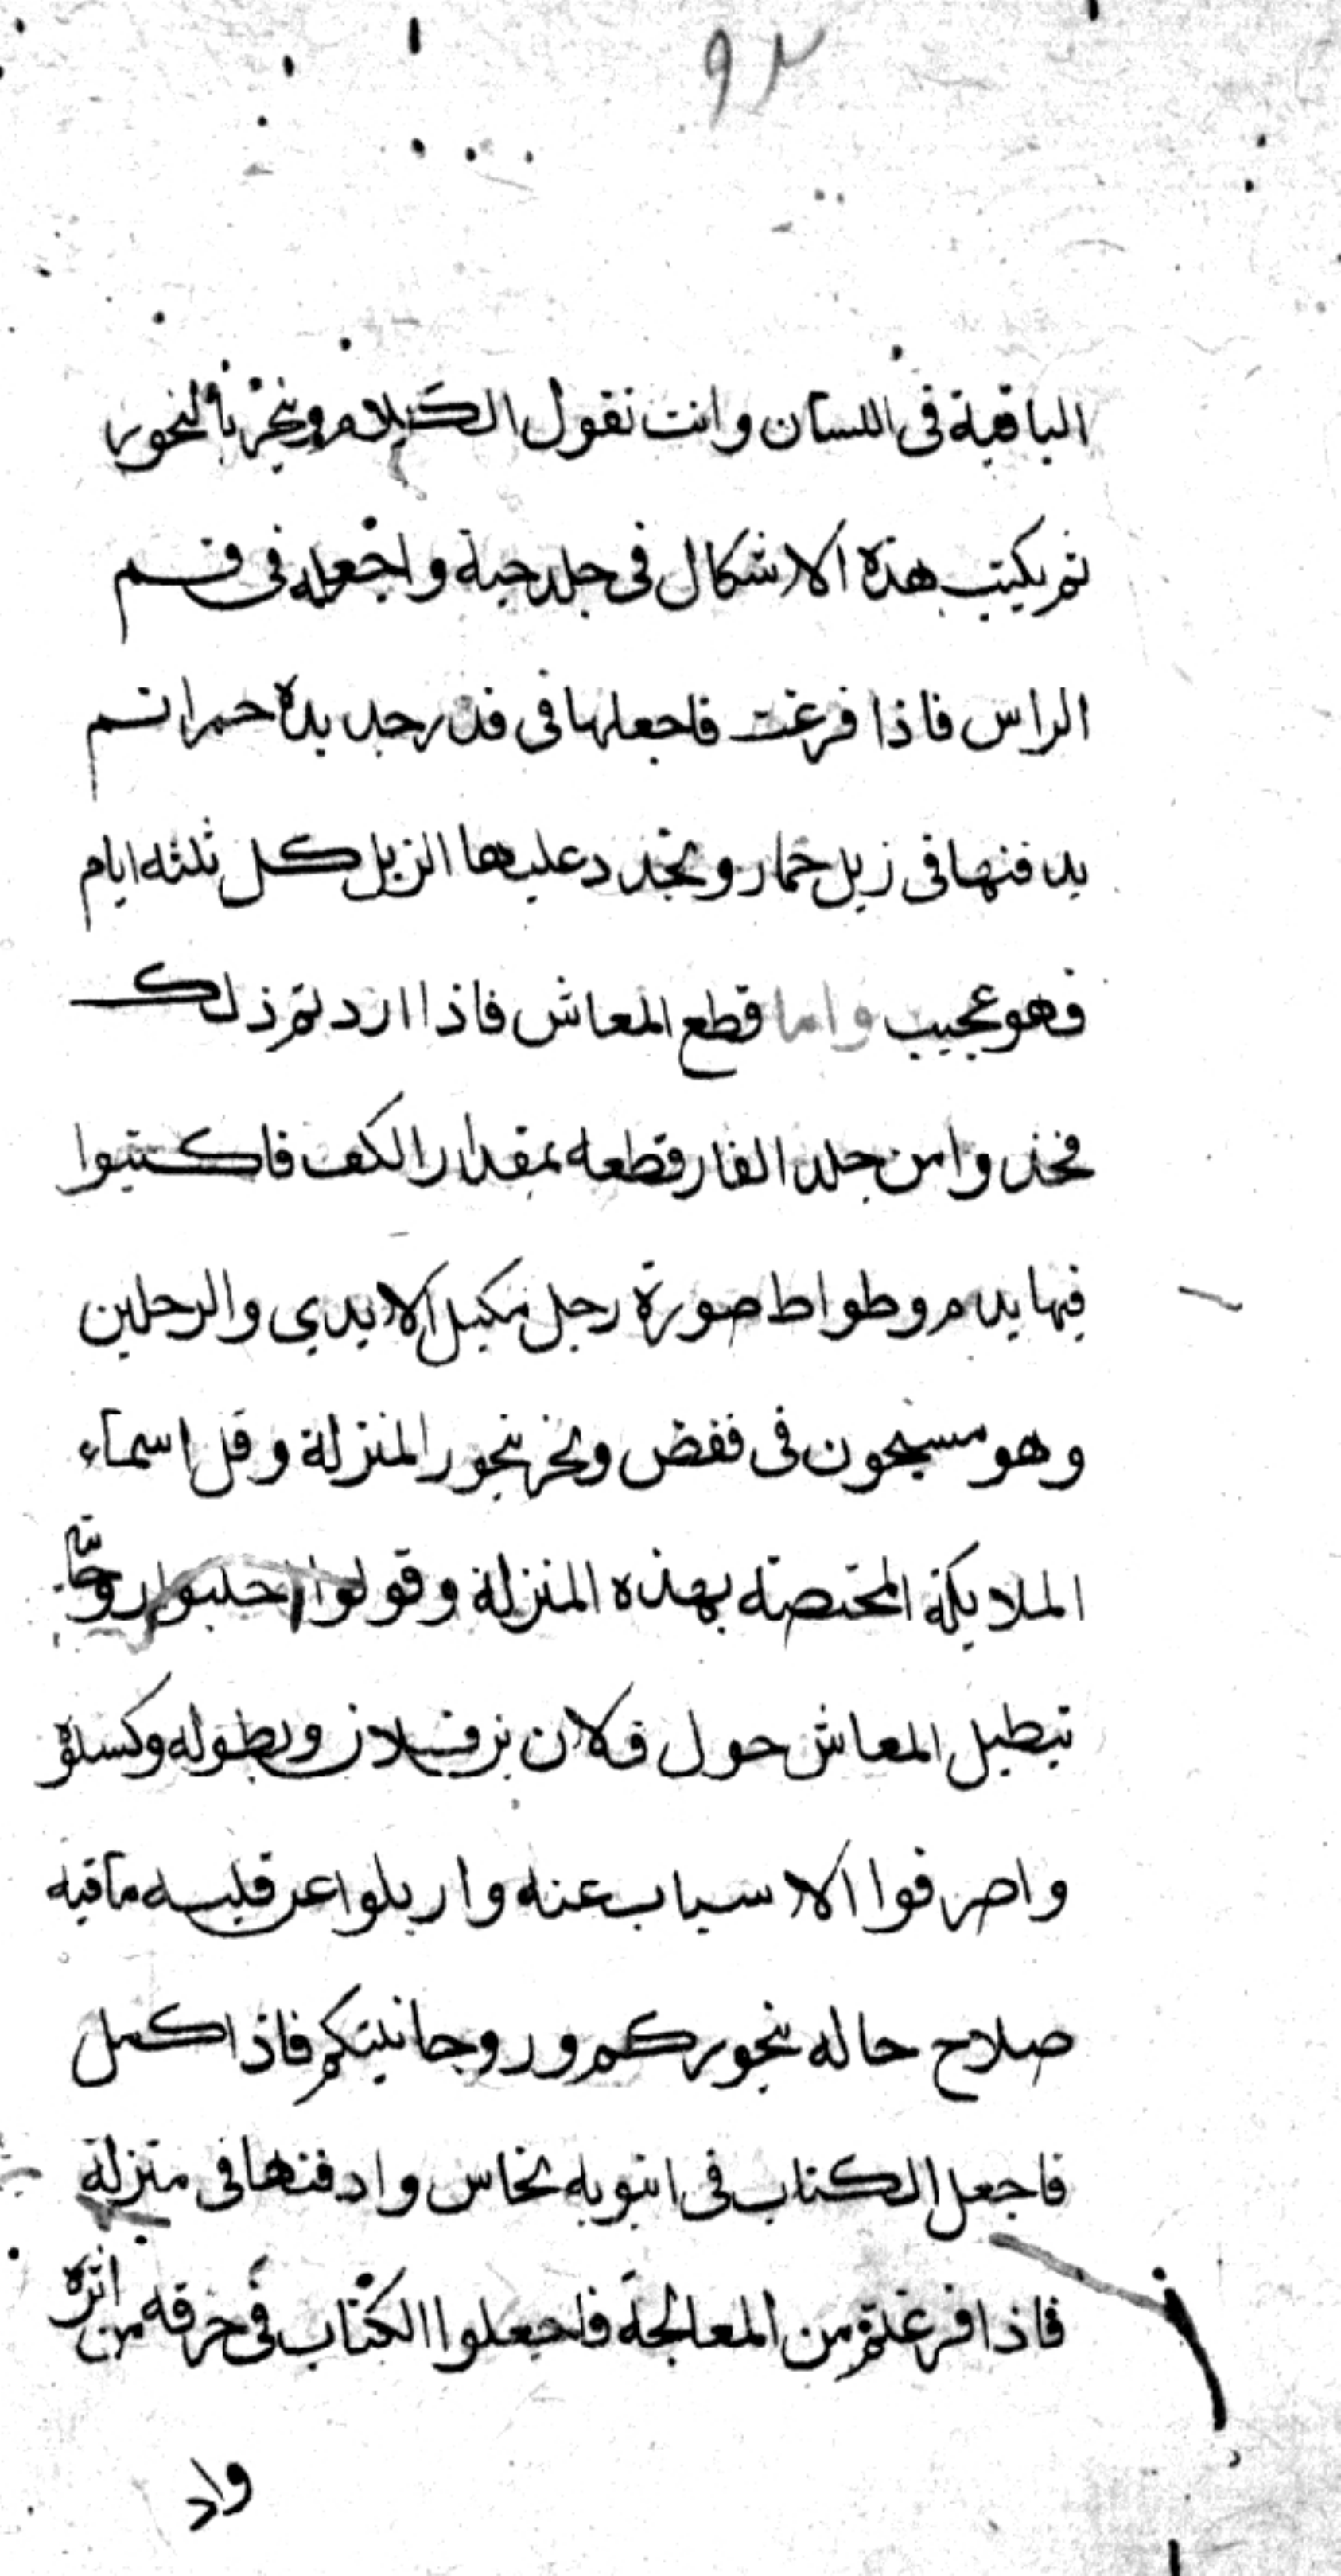 ٩٢
الباقية في اللسان وانت تقول الكلام ويبخر بالبخور
ثم يكتب هذه الاشكال في جلد حية واجعله في فم
الراس فاذا فرغت فاجعلها في قدر جديدة حمرا ثم
يدفنها في زبل حمار وتجدد عليها الزبل كل ثلثه ايام
فهو عجيب واما قطع المعاش فاذا اردتم ذلك
فخذوا من جلد الفار قطعه بمقدار الكف فاكتبوا
فيها بدم وطواط صورة رجل مكبل الايدي والرجلين
وهو مسجون في قفض وبخر ببخور المنزلة وقل اسماء
الملايكة المختصة بهذه المنزلة وقولوا اجلبوا روحا
تبطيل المعاش حول فلان بن فلان وبطوله وكسلوه
واصرفوا الاسباب عنه وازيلوا عن قلبه ما فيه
صلاح حاله ببخوركم وروحانيتكم فاذا كمل
فاجعل الكتاب في انبوبه نحاس وادفنها في منزلة
فاذا فرغتم من المعالجة فاجعلوا الكتاب في خرقه من اثره
واد